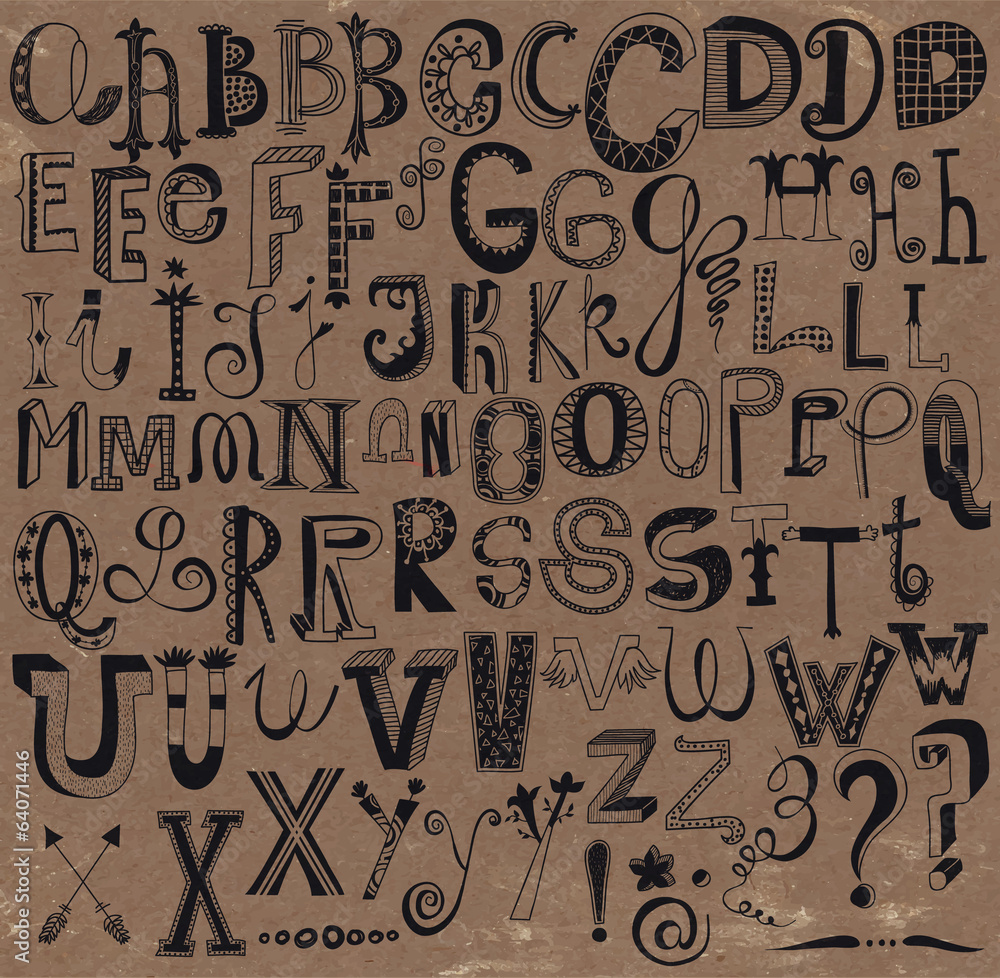 a h B B B C C C D D D
E E e F F f G G g H H h
I i I J j J K K k L L L
M M m N n N O O O P P P Q
Q Q R R R S S S T T t
U U u V V V W W W
X X X y y y Z Z 3 ? ?
! * . @
Adobe Stock | #64071446